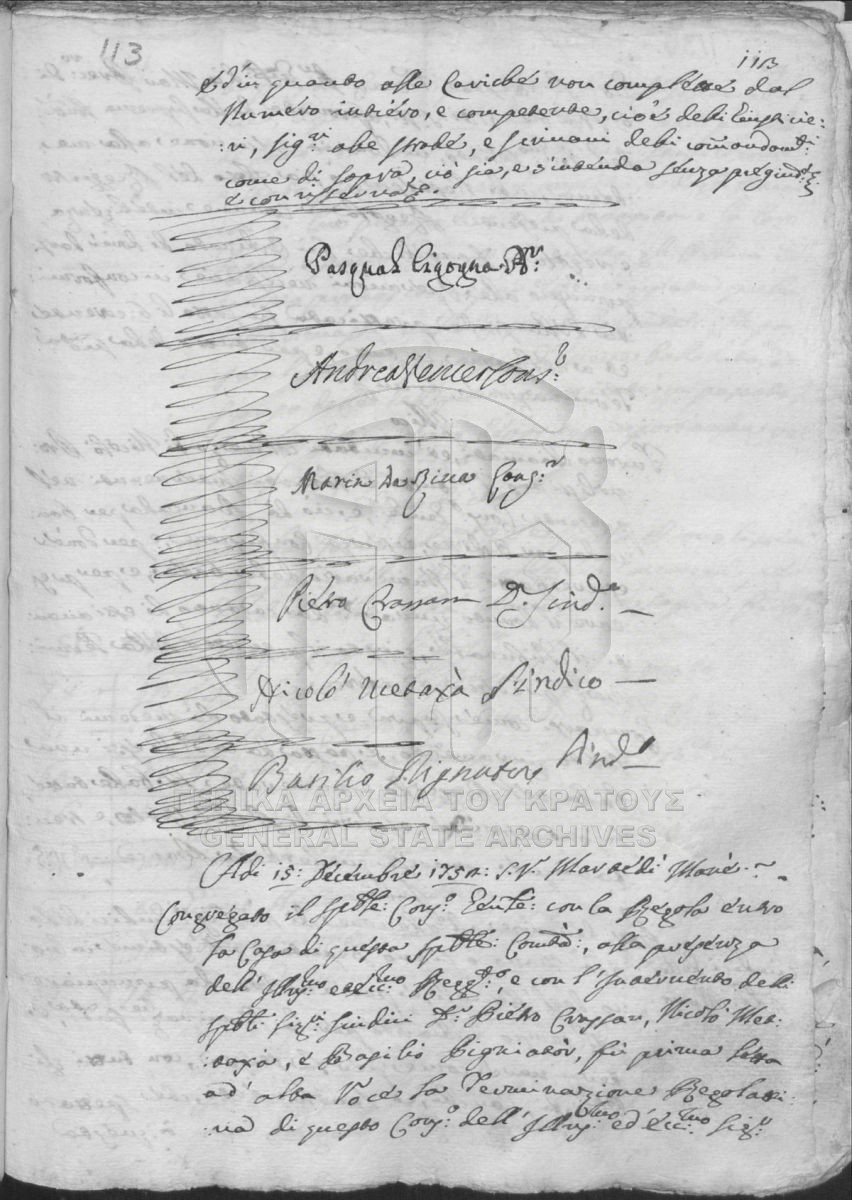 113
113
ed in quanto alle Cariche non complesse dal
Numero intiero, e competente, cioè delli Giusticie:
:ri, Sig:ri alle strade, e scrivani delli commandam:ti
come di sopra, ciò sia, e s'intenda senza pregiud:o
e con riserva.
Pasqual Cigogna P:r
Andrea Venier Cons:r
Marin da Riva Cons:r
Pietro Crassan D:r Sind:o
Nicolò Metaxà Sindico
Basilio Pignatore Sind:o
ΓΕΝΙΚΑ ΑΡΧΕΙΑ ΤΟΥ ΚΡΑΤΟΥΣ
GENERAL STATE ARCHIVES
Adi 15: Decembre S.V. Martedi Mane
Congregato il Sp:le Con:o con la Regola entro
la Casa di questa Sp:le Com:tà, alla presenza
dell' Ill:mo ed Ecc:mo Regg:to, e con l'intervento delli
Sp:li Sig:ri Sindici D:r Pietro Crassan, Nicolò Met:
:taxà, e Basilio Pigniator, fù prima letta
ad' alta Voce la Terminazione Regolati:
:va di questo Con:o dell' Ill:mo ed Ecc:mo Sig:r